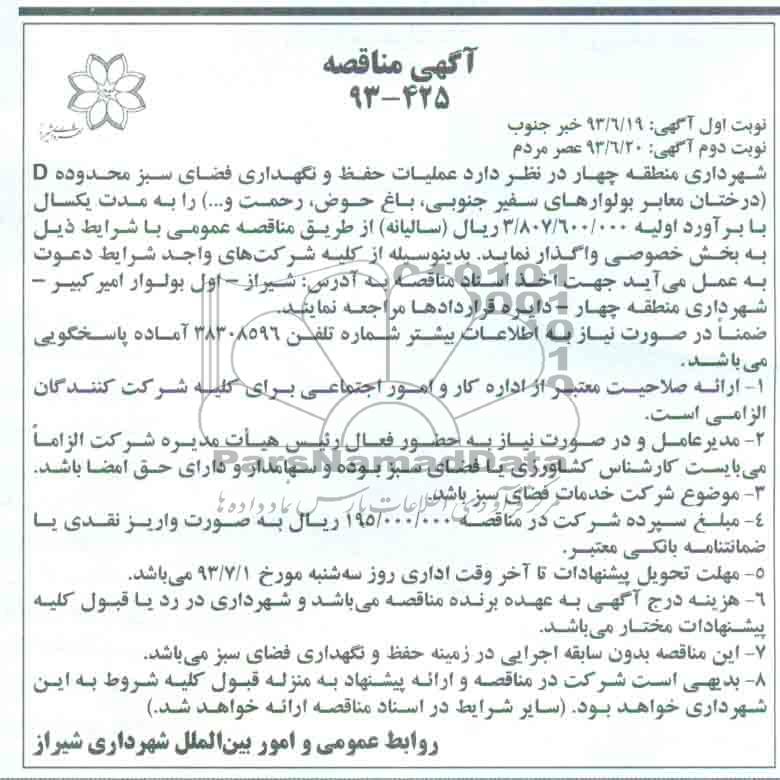 آگهی مناقصه
۹۳-۴۲۵
نوبت اول آگهی: ۹۳/۶/۱۹ خبر جنوب
نوبت دوم آگهی: ۹۳/۶/۲۰ عصر مردم
شهرداری منطقه چهار در نظر دارد عملیات حفظ و نگهداری فضای سبز محدوده D
(درختان معابر بولوارهای سفیر جنوبی، باغ حوض، رحمت و...) را به مدت یکسال
با برآورد اولیه ۳/۸۰۷/۶۰۰/۰۰۰ ریال (سالیانه) از طریق مناقصه عمومی با شرایط ذیل
به بخش خصوصی واگذار نماید. بدینوسیله از کلیه شرکت‌های واجد شرایط دعوت
به عمل می‌آید جهت اخذ اسناد مناقصه به آدرس: شیراز – اول بولوار امیرکبیر –
شهرداری منطقه چهار – دایره قراردادها مراجعه نمایند.
ضمناً در صورت نیاز به اطلاعات بیشتر شماره تلفن ۳۸۳۰۸۵۹۶ آماده پاسخگویی
می‌باشد.
۱- ارائه صلاحیت معتبر از اداره کار و امور اجتماعی برای کلیه شرکت کنندگان
الزامی است.
۲- مدیرعامل و در صورت نیاز به حضور فعال رئیس هیأت مدیره شرکت الزاماً
می‌بایست کارشناس کشاورزی یا فضای سبز بوده و سهامدار و دارای حق امضا باشد.
ParsNamadData
۳- موضوع شرکت خدمات فضای سبز باشد.
مرکز فرآوری اطلاعات پارس نماد داده‌ها
۴- مبلغ سپرده شرکت در مناقصه ۱۹۵/۰۰۰/۰۰۰ ریال به صورت واریز نقدی یا
ضمانتنامه بانکی معتبر.
۵- مهلت تحویل پیشنهادات تا آخر وقت اداری روز سه‌شنبه مورخ ۹۳/۷/۱ می‌باشد.
۶- هزینه درج آگهی به عهده برنده مناقصه می‌باشد و شهرداری در رد یا قبول کلیه
پیشنهادات مختار می‌باشد.
۷- این مناقصه بدون سابقه اجرایی در زمینه حفظ و نگهداری فضای سبز می‌باشد.
۸- بدیهی است شرکت در مناقصه و ارائه پیشنهاد به منزله قبول کلیه شروط به این
شهرداری خواهد بود. (سایر شرایط در اسناد مناقصه ارائه خواهد شد.)
روابط عمومی و امور بین‌الملل شهرداری شیراز